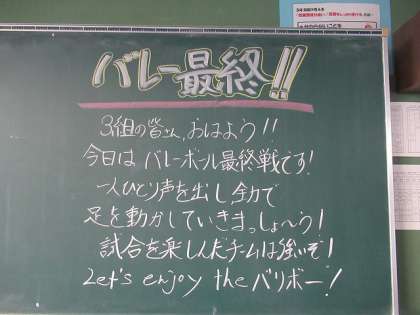 バレー最終!!
3組の皆さん、おはよう!!
今日はバレーボール最終戦です!
一人ひとり声を出し全力で
足を動かしていきまっしょ〜う!
試合を楽しんだチームは強いぞ!
Let's enjoy the バリボー!